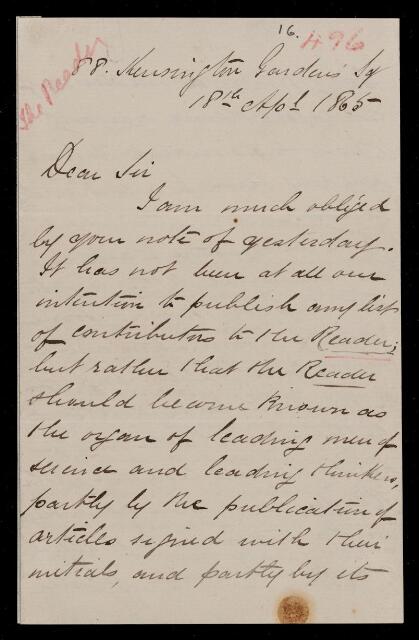 16.
496
The Reader
88. Kensington Gardens Sq
18th Apl 1865
Dear Sir
I am much obliged
by your note of yesterday.
It has not been at all our
intention to publish any list
of contributors to the Reader;
but rather that the Reader
should become known as
the organ of leading men of
science and leading thinkers,
partly by the publication of
articles signed with their
initials, and partly by its